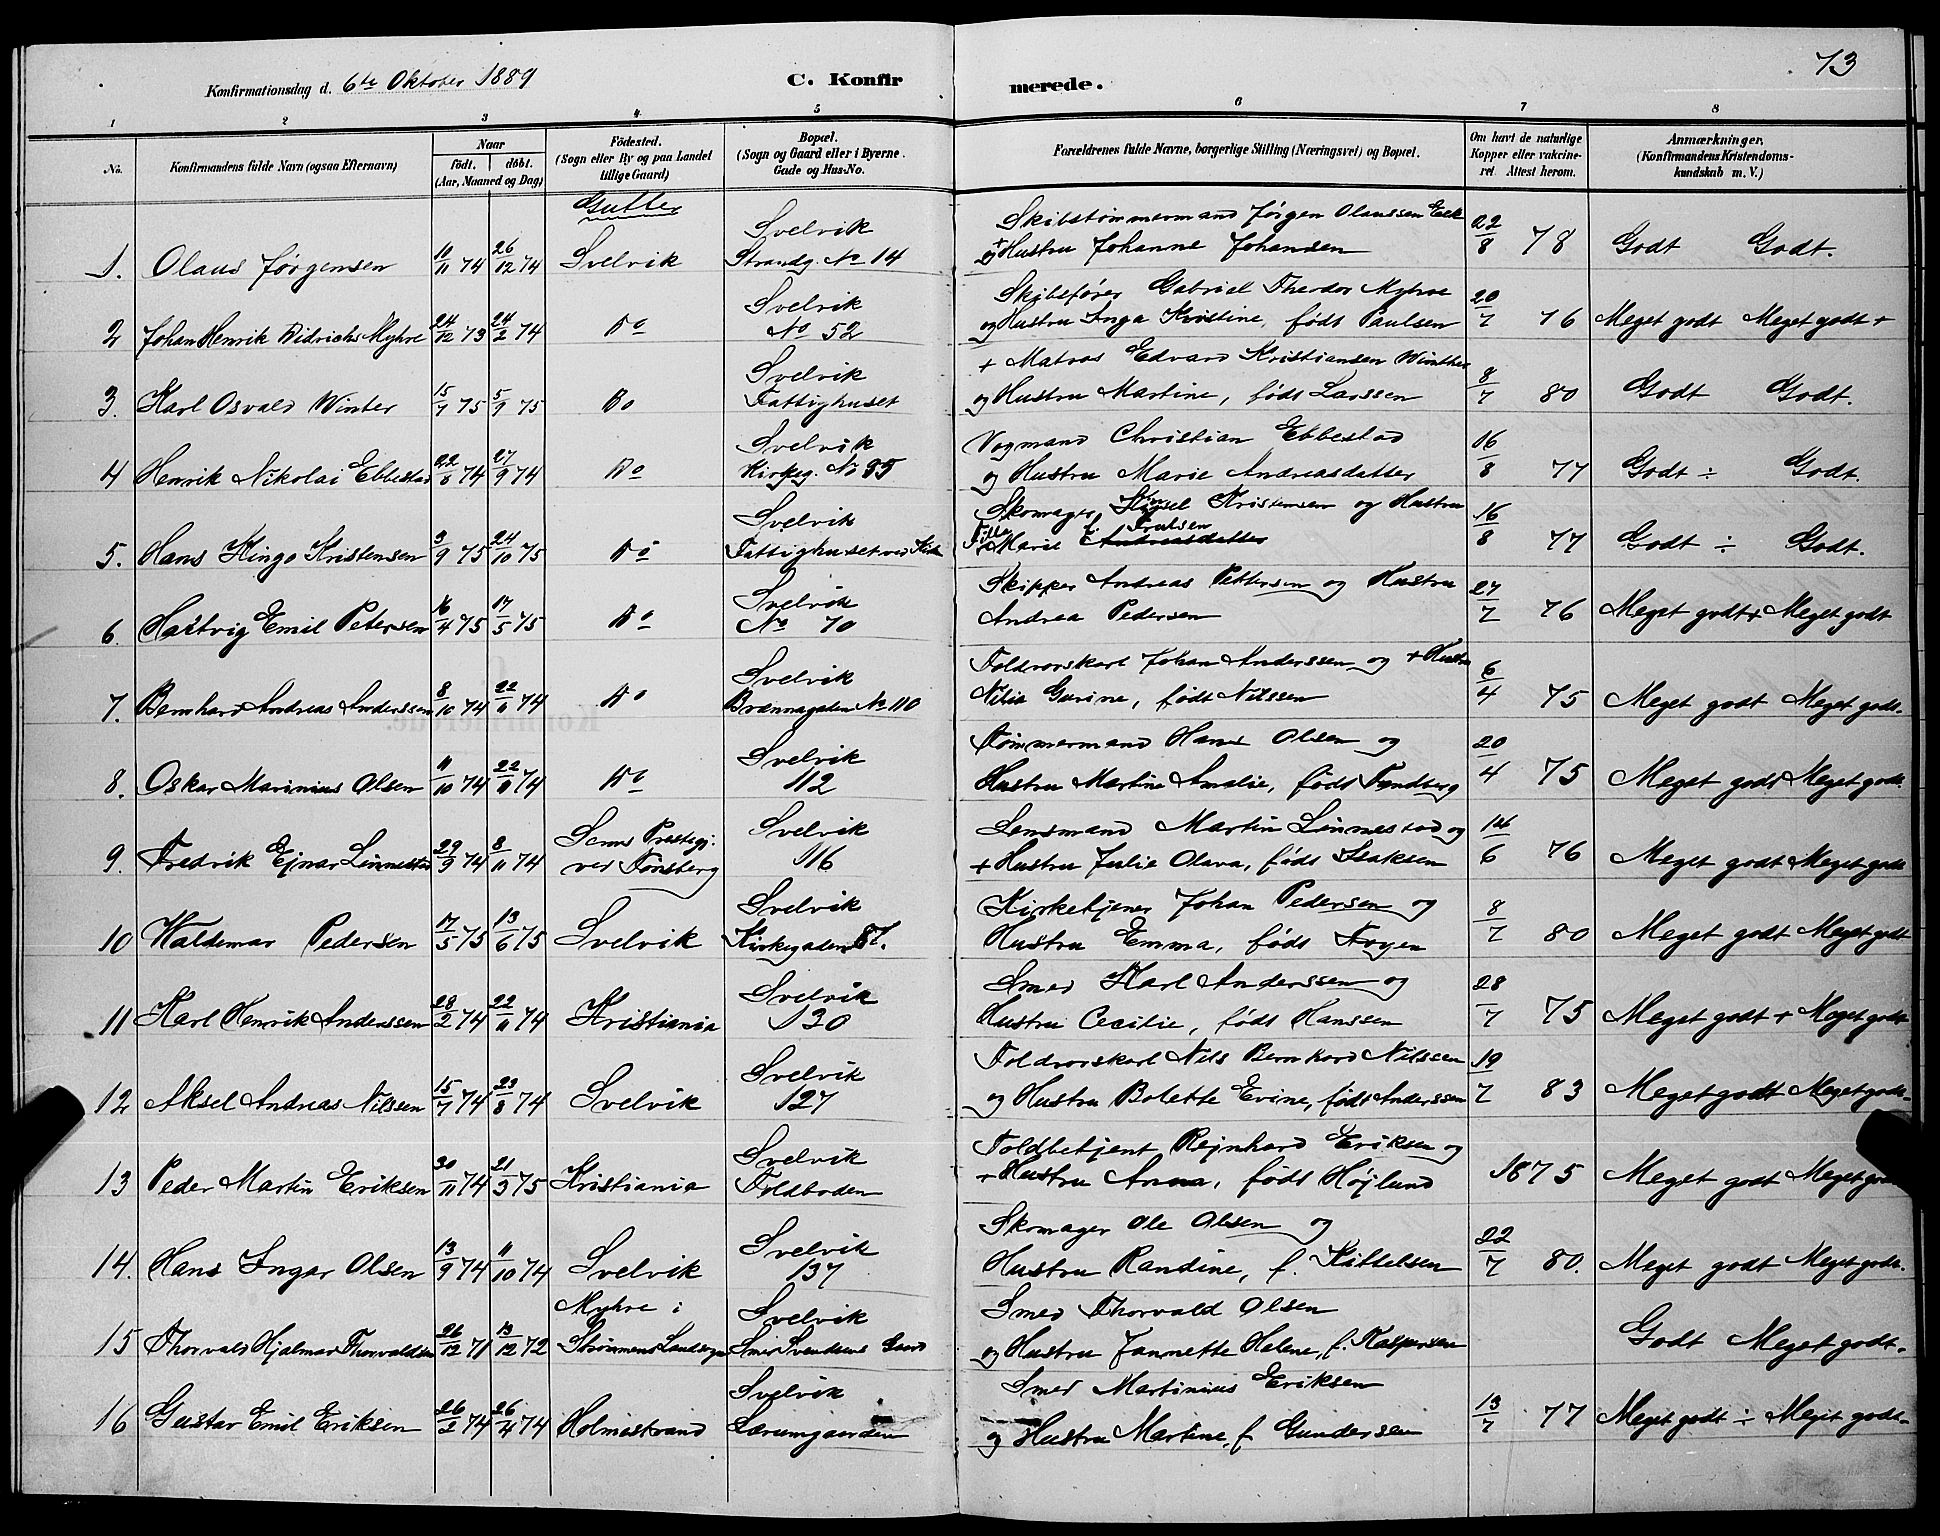 73
Konfirmationsdag d. 6te Oktober 1889 C. Konfirmerede.
1 2 3 4 5 6 7 8
No. Konfirmandens fulde Navn (ogsaa Efternavn) Naar født. døbt. (Aar, Maaned og Dag) Födested. (Sogn eller By og paa Landet tillige Gaard) Bopæl. (Sogn og Gaard eller i Byerne Gade og Hus-No. Forældrenes fulde Navne, borgerlige Stilling (Næringsvei) og Bopæl. Om havt de naturlige Kopper eller vakcineret. Attest herom. Anmærkninger. (Konfirmandens Kristendomskundskab m. V.)
Gutter
Svelvik Skibstømmermand Jørgen Olaussen Eek
1. Olaus Jørgensen 11/11 74 26/12 74 Svelvik Strandg. No 14 + og Hustru Johanne Johansen 22/8 78 Godt Godt.
Svelvik Skibsfører Gabriel Theodor Myhre
2 Johan Henrik Didrichs Myhre 24/12 73 24/2 74 Do No 52 og Hustru Inga Kristine, født Paulsen 20/7 76 Meget godt Meget godt +
Svelvik + Matros Edvard Kristiansen Winther
3. Karl Osvald Winter 15/7 75 5/9 75 Do Fattighuset og Hustru Martine, født Larssen 8/7 80 Godt Godt.
Svelvik Vognmand Christian Ebbestad
4 Henrik Nikolai Ebbestad 22/8 74 27/9 74 Do Kirkeg. No 35 og Hustru Marie Andreasdatter 16/8 77 Godt ÷ Godt.
Svelvik Skomager Kristensen og Hustru
5. Hans Kingo Kristensen 3/9 75 24/10 75 Do Fattighuset ved Marie Andreasdatter 16/8 77 Godt ÷ Godt.
Svelvik Skipper Andreas Pettersen og Hustru
6. Hartvig Emil Petersen 16/4 75 17/5 75 Do No 70 Andrea Pedersen 27/7 76 Meget godt + Meget godt
Svelvik Toldrorskarl Johan Anderssen og + Hustru
7. Bernhard Andreas Anderssen 8/10 74 22/11 74 Do Brænnagaden No 110 Nilia Gurine, født Nilssen 6/4 75 Meget godt Meget godt.
Svelvik Tømmermand Hans Olsen og
8. Oskar Marinius Olsen 11/10 74 22/11 74 Do 112 Hustru Martine Amalie, født Tandberg 20/4 75 Meget godt Meget godt.
Sems Prestegj. Svelvik Lensmand Martin Linnestad og
9. Fredrik Ejnar Linnestad 29/9 74 8/11 74 ved Tønsberg 116 + Hustru Julie Olava, født Isaksen 14/6 76 Meget godt Meget godt
Svelvik Kirketjener Johan Pedersen og
10 Waldemar Pedersen 17/5 75 13/6 75 Svelvik Kirkegaden 87. Hustru Emma, født Foyen 8/7 80 Meget godt Meget godt
Svelvik Smed Karl Anderssen og
11 Karl Henrik Anderssen 28/2 74 22/11 74 Kristiania 130 Hustru Cecilie, født Hanssen 28/7 75 Meget godt + Meget godt
Svelvik Toldrorskarl Nils Bernhard Nilssen
12 Aksel Andreas Nilssen 15/7 74 23/8 74 Svelvik 127 og Hustru Bolette Evine, født Anderssen 19/7 83 Meget godt Meget godt.
Svelvik Toldbetjent Rejnhard Eriksen og
13 Peder Martin Eriksen 30/11 74 21/3 75 Kristiania Toldboden + Hustru Anna, født Højlund 1875 Meget godt Meget godt
Svelvik Skomager Ole Olsen og
14. Hans Ingar Olsen 13/9 74 11/10 74 Svelvik 137 Hustru Randine, f. Kittelsen 22/7 80. Meget godt Meget godt.
Myhre i Svelvik Smed Thorvald Olsen
15 Thorvald Hjalmar Thorvaldsen 26/12 71 13/12 72 Strømmens Landsogn Smed Svendsens Gaard og Hustru Jannette Helene, f. Kaspersen Godt Meget godt.
Svelvik Smed Martinius Eriksen
16 Gustav Emil Eriksen 26/2 74 26/4 74 Holmestrand Lærumgaarden og Hustru Martine, f. Gundersen 13/7 77 Meget godt ÷ Meget godt